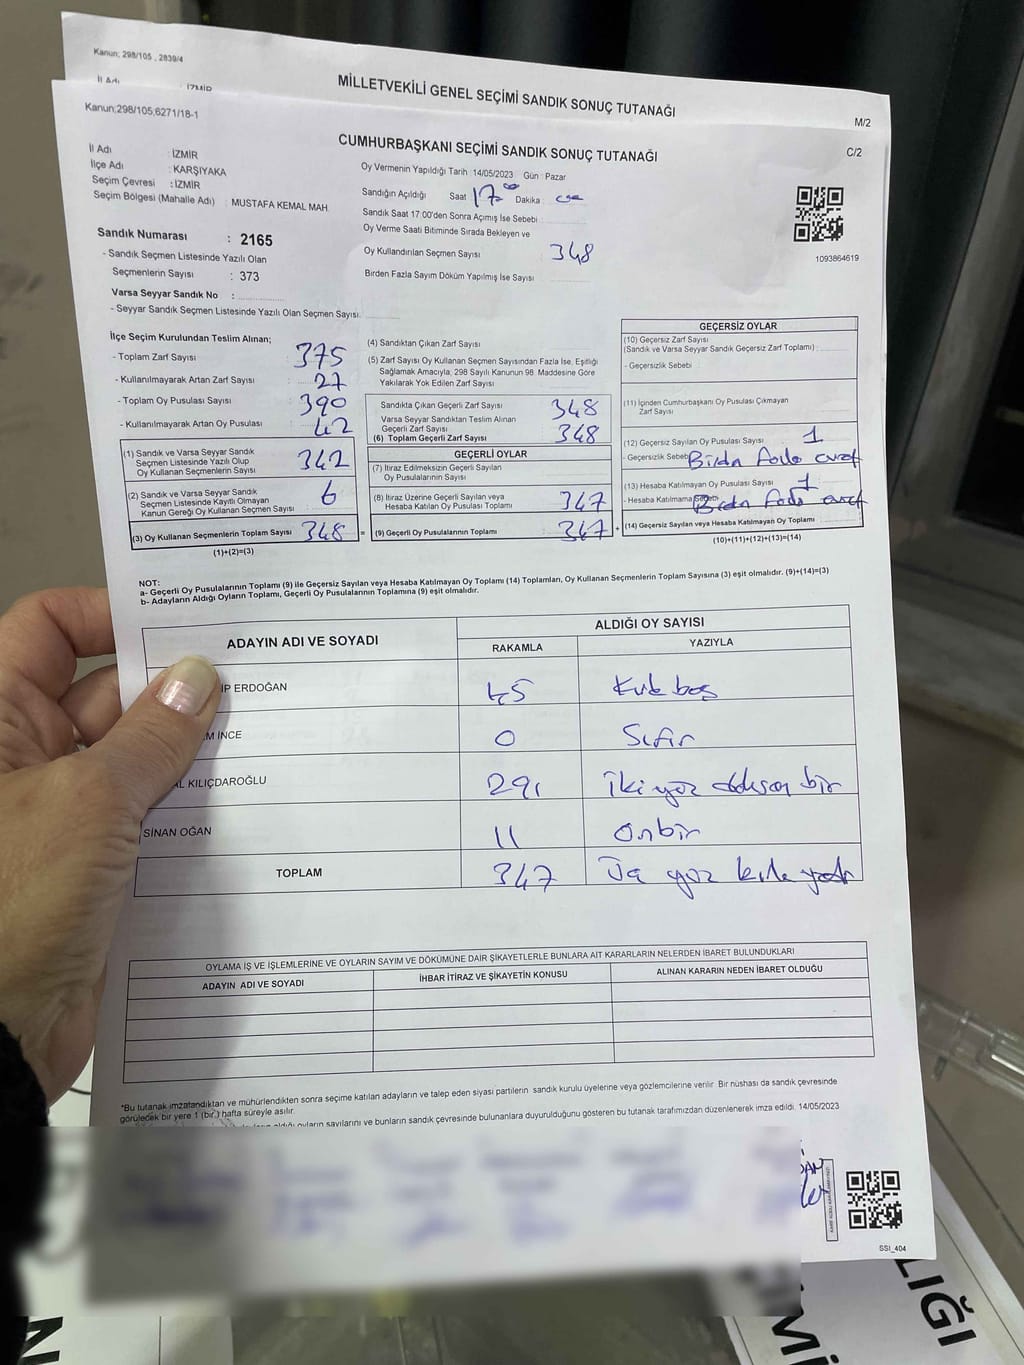 Kanun; 298/105 , 2839/4
MİLLETVEKİLİ GENEL SEÇİMİ SANDIK SONUÇ TUTANAĞI
M/2
İl Adı İZMİR
Kanun;298/105,6271/18-1
CUMHURBAŞKANI SEÇİMİ SANDIK SONUÇ TUTANAĞI
C/2
İl Adı : İZMİR
İlçe Adı : KARŞIYAKA
Seçim Çevresi : İZMİR
Seçim Bölgesi (Mahalle Adı) : MUSTAFA KEMAL MAH.
Oy Vermenin Yapıldığı Tarih 14/05/2023 Gün : Pazar
Sandığın Açıldığı Saat 17 00 Dakika
Sandık Saat 17:00'den Sonra Açımış İse Sebebi
Oy Verme Saati Bitiminde Sırada Bekleyen ve
Oy Kullandırılan Seçmen Sayısı 348
Birden Fazla Sayım Döküm Yapılmış İse Sayısı
1093864619
Sandık Numarası : 2165
- Sandık Seçmen Listesinde Yazılı Olan
Seçmenlerin Sayısı : 373
Varsa Seyyar Sandık No :
- Seyyar Sandık Seçmen Listesinde Yazılı Olan Seçmen Sayısı:
İlçe Seçim Kurulundan Teslim Alınan;
- Toplam Zarf Sayısı 375
- Kullanılmayarak Artan Zarf Sayısı 27
- Toplam Oy Pusulası Sayısı 390
- Kullanılmayarak Artan Oy Pusulası 42
(1) Sandık ve Varsa Seyyar Sandık
Seçmen Listesinde Yazılı Olup
Oy Kullanan Seçmenlerin Sayısı 342
(2) Sandık ve Varsa Seyyar Sandık
Seçmen Listesinde Kayıtlı Olmayan
Kanun Gereği Oy Kullanan Seçmen Sayısı 6
(3) Oy Kullanan Seçmenlerin Toplam Sayısı 348 =
(1)+(2)=(3)
(4) Sandıktan Çıkan Zarf Sayısı
(5) Zarf Sayısı Oy Kullanan Seçmen Sayısından Fazla İse, Eşitliği
Sağlamak Amacıyla, 298 Sayılı Kanunun 98. Maddesine Göre
Yakılarak Yok Edilen Zarf Sayısı
Sandıkta Çıkan Geçerli Zarf Sayısı 348
Varsa Seyyar Sandıktan Teslim Alınan
Geçerli Zarf Sayısı
(6) Toplam Geçerli Zarf Sayısı 348
GEÇERLİ OYLAR
(7) İtiraz Edilmeksizin Geçerli Sayılan
Oy Pusulalarının Sayısı
(8) İtiraz Üzerine Geçerli Sayılan veya
Hesaba Katılan Oy Pusulası Toplamı 347
(9) Geçerli Oy Pusulalarının Toplamı 347 +
GEÇERSİZ OYLAR
(10) Geçersiz Zarf Sayısı
(Sandık ve Varsa Seyyar Sandık Geçersiz Zarf Toplamı) :
- Geçersizlik Sebebi :
(11) İçinden Cumhurbaşkanı Oy Pusulası Çıkmayan
Zarf Sayısı
(12) Geçersiz Sayılan Oy Pusulası Sayısı 1
- Geçersizlik Sebebi Birden fazla evet
(13) Hesaba Katılmayan Oy Pusulası Sayısı 1
- Hesaba Katılmama Sebebi Birden fazla evet
(14) Geçersiz Sayılan veya Hesaba Katılmayan Oy Toplamı
(10)+(11)+(12)+(13)=(14)
NOT:
a- Geçerli Oy Pusulalarının Toplamı (9) ile Geçersiz Sayılan veya Hesaba Katılmayan Oy Toplamı (14) Toplamları, Oy Kullanan Seçmenlerin Toplam Sayısına (3) eşit olmalıdır. (9)+(14)=(3)
b- Adayların Aldığı Oyların Toplamı, Geçerli Oy Pusulalarının Toplamına (9) eşit olmalıdır.
ADAYIN ADI VE SOYADI
ALDIĞI OY SAYISI
RAKAMLA YAZIYLA
İP ERDOĞAN 45 Kırk beş
M İNCE 0 Sıfır
AL KILIÇDAROĞLU 291 iki yüz doksan bir
SİNAN OĞAN 11 Onbir
TOPLAM 347 Üç yüz kırk yedi
OYLAMA İŞ VE İŞLEMLERİNE VE OYLARIN SAYIM VE DÖKÜMÜNE DAİR ŞİKAYETLERLE BUNLARA AİT KARARLARIN NELERDEN İBARET BULUNDUKLARI
ADAYIN ADI VE SOYADI İHBAR İTİRAZ VE ŞİKAYETİN KONUSU ALINAN KARARIN NEDEN İBARET OLDUĞU
*Bu tutanak imzalandıktan ve mühürlendikten sonra seçime katılan adayların ve talep eden siyasi partilerin sandık kurulu üyelerine veya gözlemcilerine verilir. Bir nüshası da sandık çevresinde
görülecek bir yere 1 (bir ) hafta süreyle asılır.
aldığı oyların sayılarını ve bunların sandık çevresinde bulunanlara duyurulduğunu gösteren bu tutanak tarafımızdan düzenlenerek imza edildi. 14/05/2023
SSI_404
LIĞI